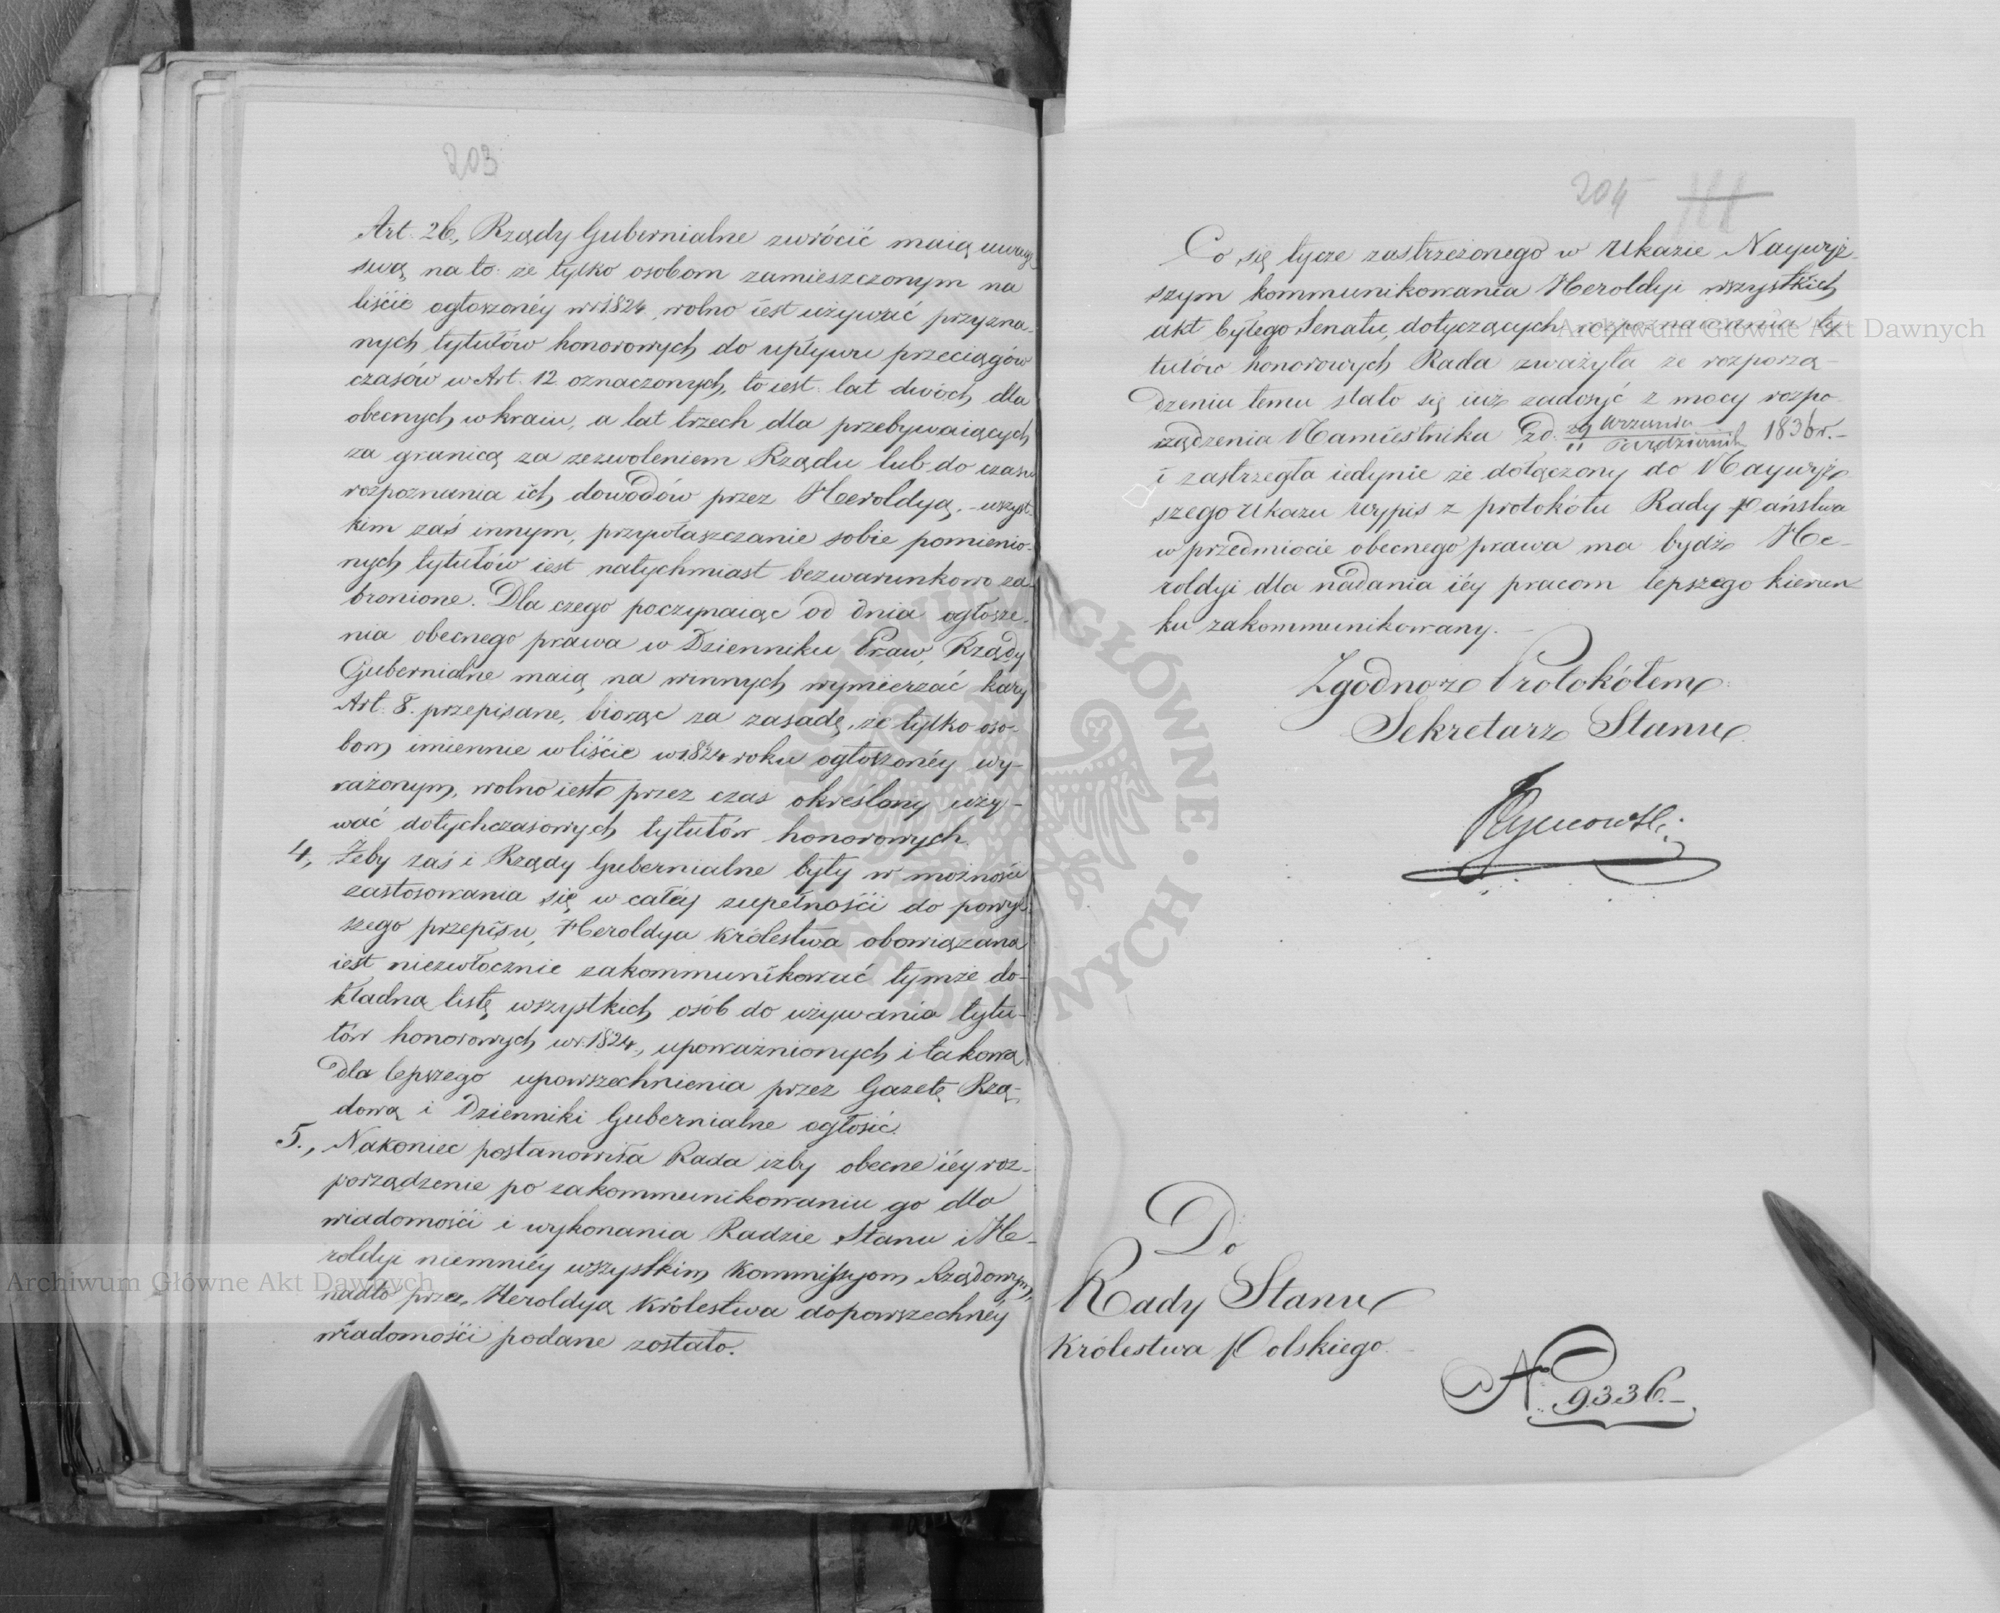 203
Art. 26., Rządy Gubernialne zwrócić maią uwagę
swą na to: że tylko osobom zamieszczonym na
liście ogłoszonéy w r. 1824, wolno iest używać przyzna-
nych tytułów honorowych do upływu przeciągów
czasów w Art. 12 oznaczonych, to iest: lat dwóch dla
obecnych w kraiu, a lat trzech dla przebywaiących
za granicą za zezwoleniem Rządu lub do czasu
rozpoznania ich dowodów przez Heroldyą, - wszyst-
kim zaś innym, przywłaszczanie sobie pomienio-
nych tytułów iest natychmiast bezwarunkowo za-
bronione. Dla czego poczynaiąc od dnia ogłosze-
nia obecnego prawa w Dzienniku Praw, Rządy
Gubernialne maią na winnych wymierzać kary
Art. 8. przepisane, biorąc za zasadę, że tylko oso-
bom imiennie w liście w 1824 roku ogłoszonéy wy-
rażonym, wolno iest przez czas określony uży-
wać dotychczasowych tytułów honorowych.
4, Żeby zaś i Rządy Gubernialne były w możności
zastosowania się w całéy zupełności do powyż-
szego przepisu, Heroldya Królestwa obowiązana
iest niezwłocznie zakommunikować tymże do-
kładną listę wszystkich osób do używania tytu-
łów honorowych w r. 1824, upoważnionych i takową
dla lepszego upowszechnienia przez Gazetę Rzą-
dową i Dzienniki Gubernialne ogłosić.
5., Nakoniec postanowiła Rada izby obecne iéy roz-
porządzenie po zakommunikowaniu go dla
wiadomości i wykonania Radzie Stanu i He-
roldyi niemniéy wszystkim Kommissyom Rządowym,
nadto przez Heroldyą Królestwa do powszechnéy
wiadomości podane zostało.
204
Co się tycze zastrzeżonego w Ukazie Naywyż-
szym kommunikowania Heroldyi wszystkich
akt byłego Senatu, dotyczących rozpoznawania ty-
tułów honorowych Rada zważyła że rozporzą-
dzeniu temu stało się iuż zadosyć z mocy rozpo-
rządzenia Namiestnika z d. 29 Września / 11 Października 1836 r. -
i zastrzegła iedynie że dołączony do Naywyż-
szego Ukazu wypis z protokółu Rady Państwa
w przedmiocie obecnego prawa ma bydź He-
roldyi dla nadania iéy pracom lepszego kierun-
ku zakommunikowany. -
Zgodno z Protokółem
Sekretarz Stanu
Do
Rady Stanu
Królestwa Polskiego.
No. 9336. -
Archiwum Główne Akt Dawnych
Archiwum Główne Akt Dawnych
ARCHIWUM GŁÓWNE AKT DAWNYCH